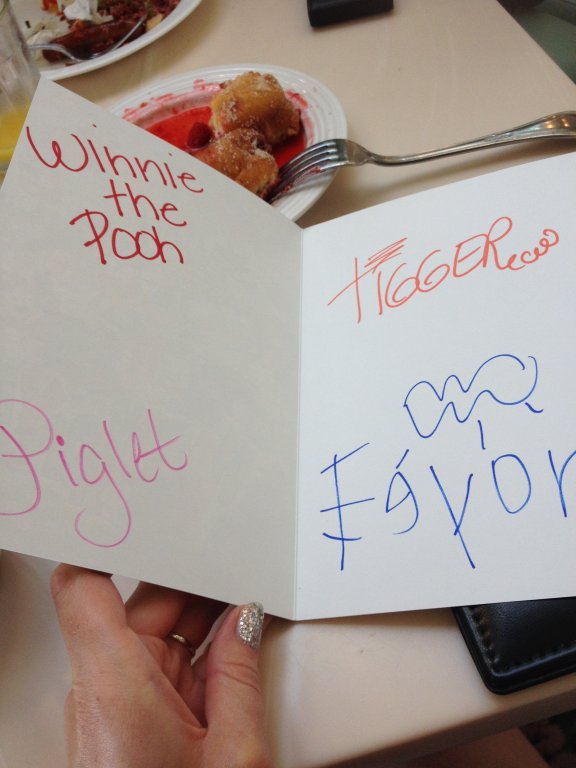 Winnie
the
Pooh
TIGGER
Piglet
Eeyor